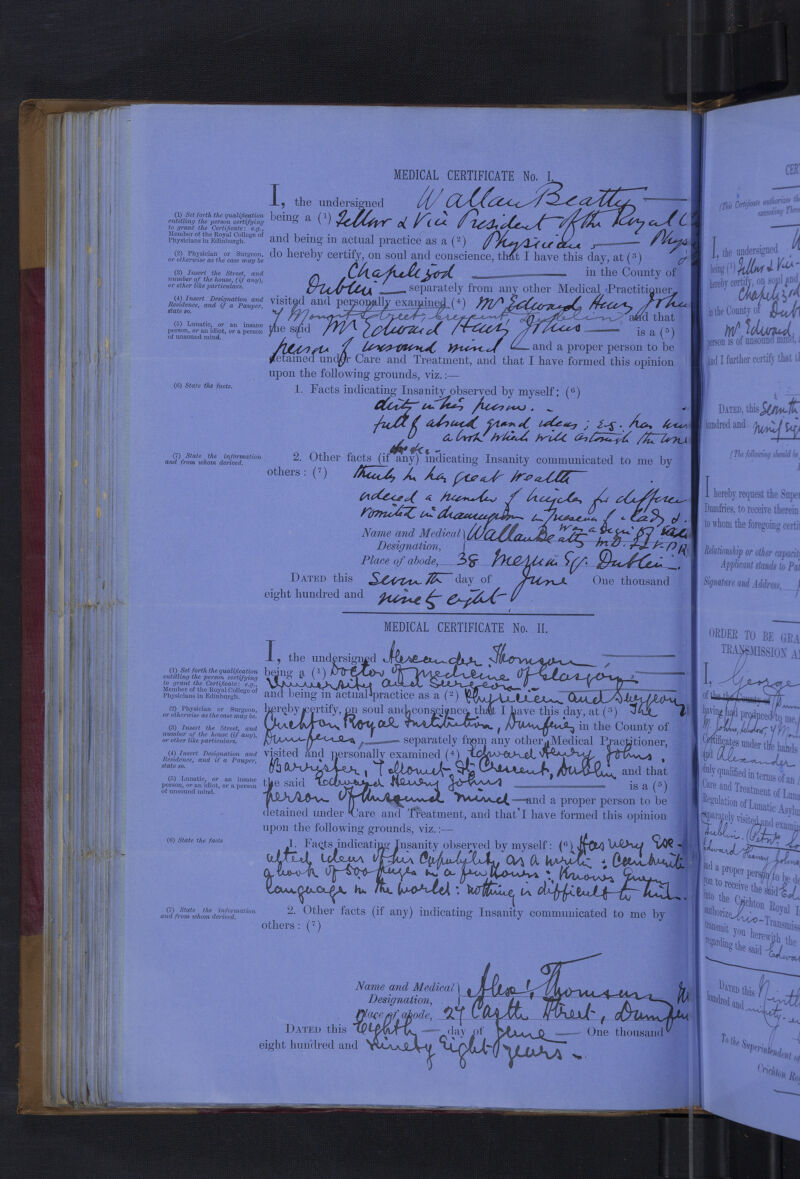 MEDICAL CERTIFICATE No. I.
I, the undersigned Wallace Beatty
(1) Set forth the qualification entitling the person certifying to grant the Certificate: e.g., Member of the Royal College of Physicians in Edinburgh.
being a (1) Fellow & Vice President of the Royal
and being in actual practice as a (2) Physician
(2) Physician or Surgeon, or otherwise as the case may be
do hereby certify, on soul and conscience, that I have this day, at (3)
(3) Insert the Street, and number of the house, (if any), or other like particulars.
Chapelizod in the County of
Dublin separately from any other Medical Practitioner,
(4) Insert Designation and Residence, and if a Pauper, state so.
visited and personally examined (4) Mr Edward Henry Johns
7 Mount Street Crescent and that
(5) Lunatic, or an insane person, or an idiot, or a person of unsound mind.
the said Mr Edward Henry Johns is a (5)
person of unsound mind and a proper person to be
detained under Care and Treatment, and that I have formed this opinion
upon the following grounds, viz.:—
(6) State the facts.
1. Facts indicating Insanity observed by myself: (6)
dirty in his person.
full of absurd grand ideas; e.g. has
a book which will astonish the
(7) State the information and from whom derived.
2. Other facts (if any) indicating Insanity communicated to me by
others: (7) thinks he has great wealth
ordered a number of bicycles for
vomited in in presence of a lady &
Name and Medical Designation, Wallace Beatty M.D.
Place of abode, 38 Merrion Sq. Dublin.
DATED this Seventh day of June One thousand
eight hundred and ninety eight
MEDICAL CERTIFICATE No. II.
I, the undersigned Alexander Thomson
(1) Set forth the qualification entitling the person certifying to grant the Certificate: e.g., Member of the Royal College of Physicians in Edinburgh.
being a (1) Doctor of Medicine of Glasgow
University and Surgeon
and being in actual practice as a (2) Physician and Surgeon
(2) Physician or Surgeon, or otherwise as the case may be.
hereby certify, on soul and conscience, that I have this day, at (3) The
(3) Insert the Street, and number of the house (if any), or other like particulars.
Crichton Royal Institution, Dumfries, in the County of
Dumfries, separately from any other Medical Practitioner,
(4) Insert Designation and Residence, and if a Pauper, state so.
visited and personally examined (4) Edward Henry Johns.
Barrister, 7 Mount St Crescent, Dublin and that
(5) Lunatic, or an insane person, or an idiot, or a person of unsound mind.
the said Edward Henry Johns is a (5)
person of unsound mind and a proper person to be
detained under Care and Treatment, and that I have formed this opinion
upon the following grounds, viz.:—
(6) State the facts
1. Facts indicating Insanity observed by myself: (6) Has very Exalted
ideas of his Capability as a writer: Can write
a book of 500 pages in a few hours: Knows every
language in the world: nothing is difficult to him.
(7) State the information and from whom derived.
2. Other facts (if any) indicating Insanity communicated to me by
others: (7)
Name and Medical Designation, Alexr Thomson
Place of abode, 27 Castle Street, Dumfries
DATED this Eighth day of June One thousand
eight hundred and Ninety Eight years
I, the undersigned
being (1) Fellow & Vice-
hereby certify, on soul and
Chapelizod
in the County of Dublin
Mr Edward
person is of unsound mind,
and I further certify that
DATED, this Seventh
hundred and
I hereby request the
Dumfries, to receive therein
to whom the foregoing
Relationship or other capacity
Applicant stands to
Signature and Address,
ORDER TO BE
TRANSMISSION
I, George